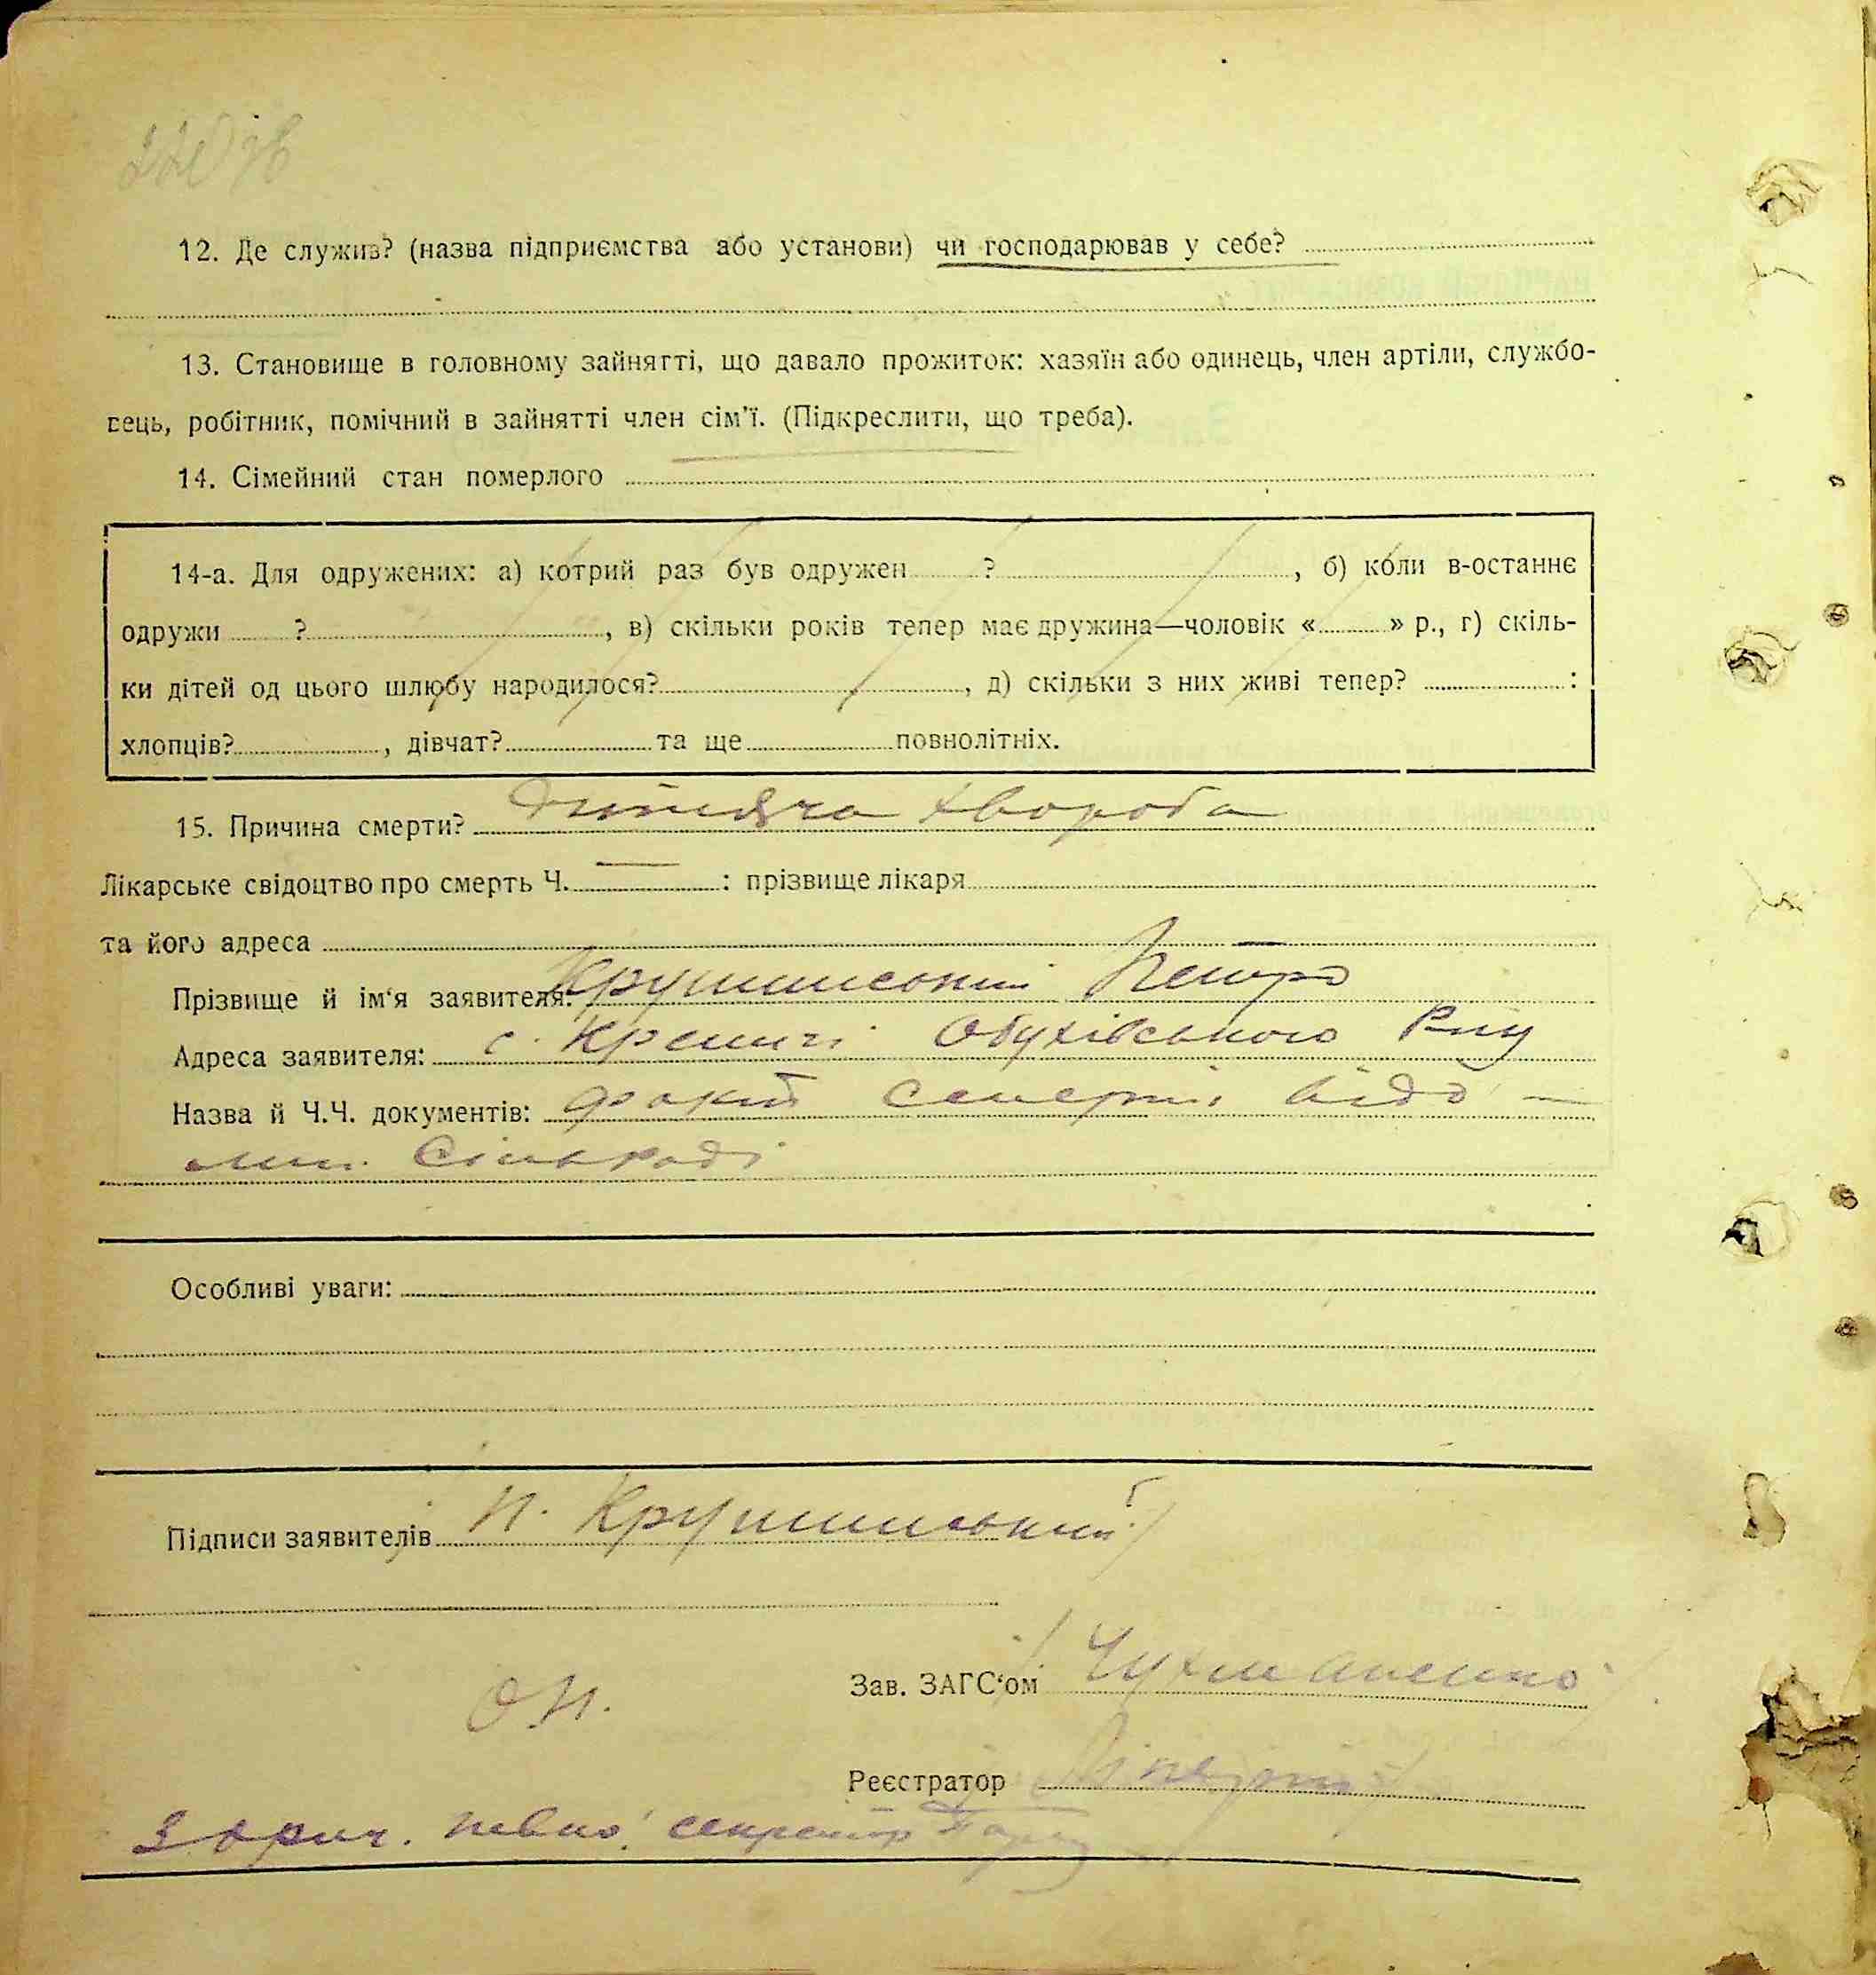 220 зв
12. Де служив? (назва підприємства або установи) чи господарював у себе?
13. Становище в головному зайнятті, що давало прожиток: хазяїн або одинець, член артіли, службо-
вець, робітник, помічний в зайнятті член сім'ї. (Підкреслити, що треба).
14. Сімейний стан померлого
14-а. Для одружених: а) котрий раз був одружен ? , б) коли в-останнє
одружи ? , в) скільки років тепер має дружина—чоловік « » р., г) скіль-
ки дітей од цього шлюбу народилося? , д) скільки з них живі тепер? :
хлопців? , дівчат? та ще повнолітніх.
15. Причина смерти? Дитяча хвороба
Лікарське свідоцтво про смерть Ч. — : прізвище лікаря
та його адреса —
Прізвище й ім'я заявителя: Крушинський Петро
Адреса заявителя: с. Креничі Обухівського Р-ну
Назва й Ч.Ч. документів: факт смерти відо-
мий Сільраді
Особливі уваги:
Підписи заявителів П. Крушинський
Зав. ЗАГС'ом / Чухманенко /
Реєстратор
З ориг. певно: секретар